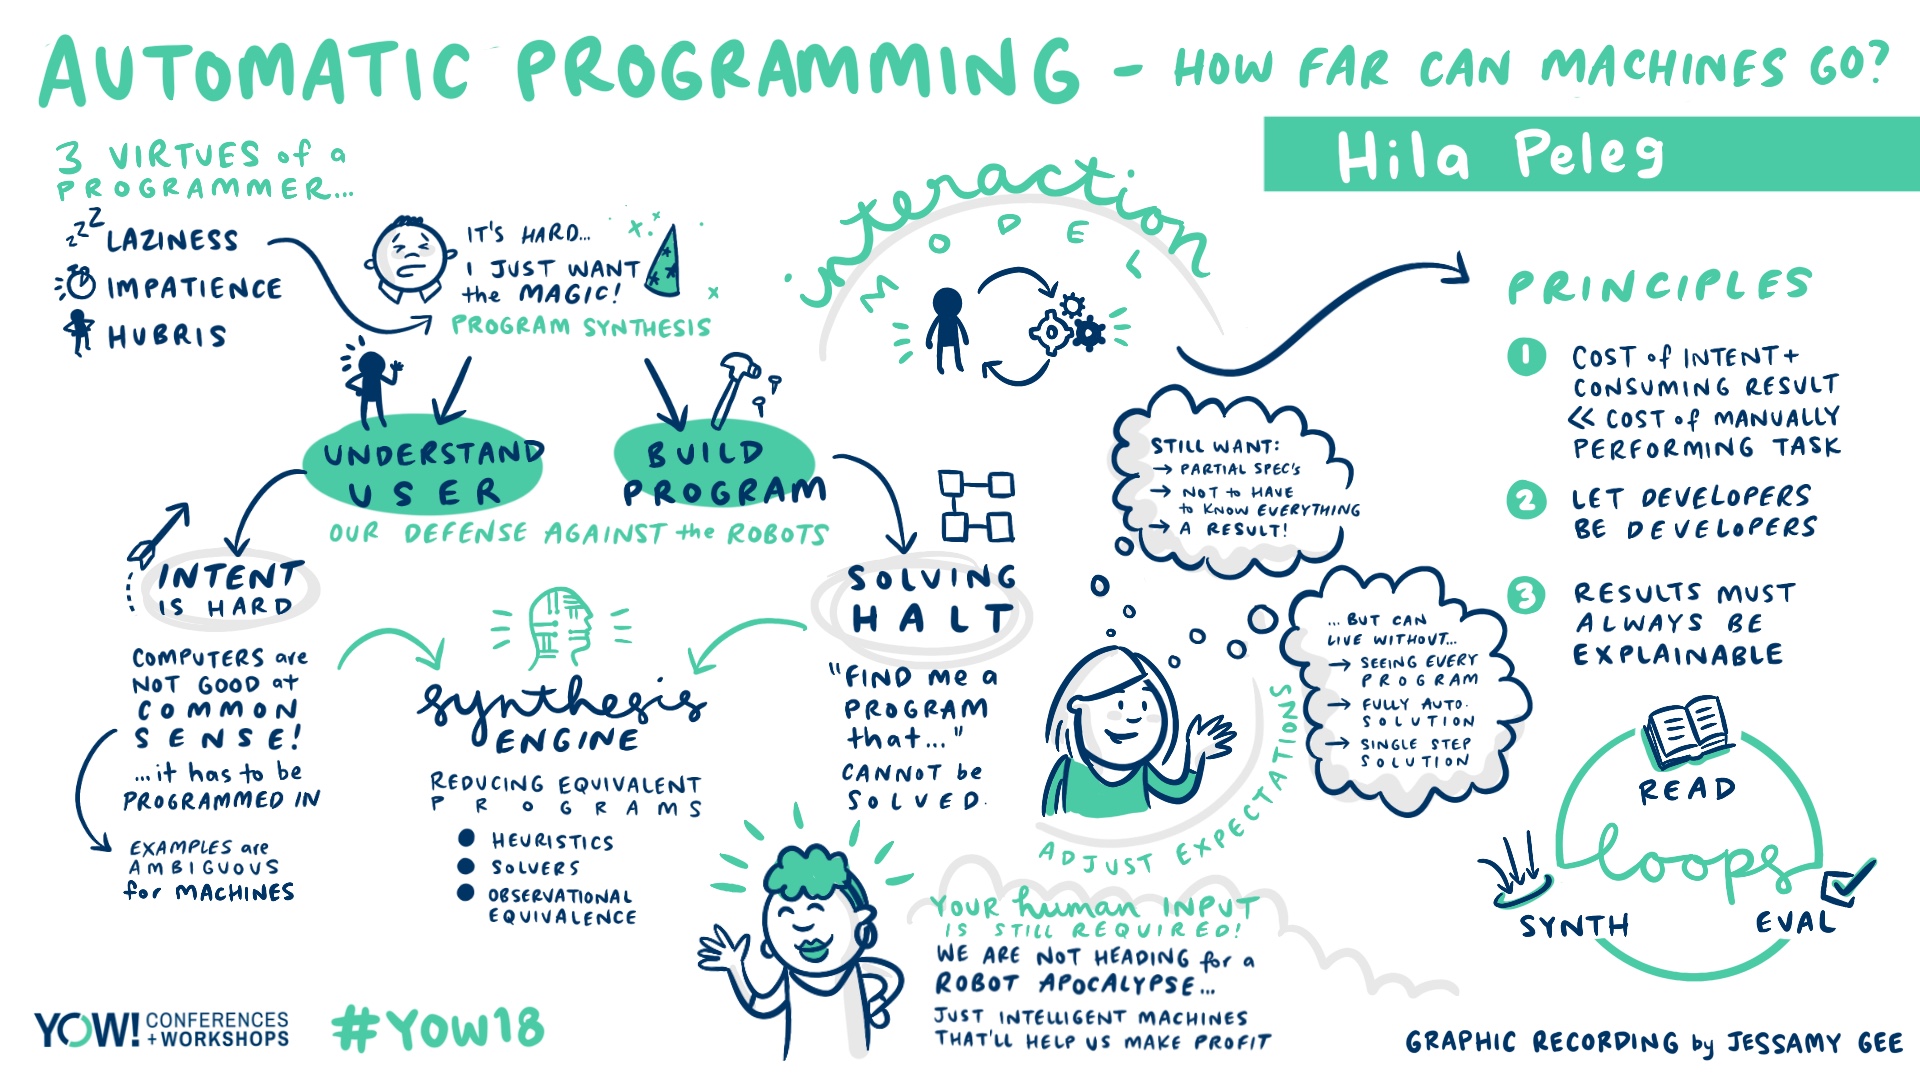 AUTOMATIC PROGRAMMING - HOW FAR CAN MACHINES GO?
Hila Peleg
3 VIRTUES of a
PROGRAMMER...
zzz
LAZINESS
IMPATIENCE
HUBRIS
IT'S HARD...
I JUST WANT
the MAGIC!
PROGRAM SYNTHESIS
UNDERSTAND
USER
BUILD
PROGRAM
OUR DEFENSE AGAINST the ROBOTS
INTENT
IS HARD
COMPUTERS are
NOT GOOD at
COMMON
SENSE!
...it has to be
PROGRAMMED IN
EXAMPLES are
AMBIGUOUS
for MACHINES
synthesis
ENGINE
REDUCING EQUIVALENT
PROGRAMS
HEURISTICS
SOLVERS
OBSERVATIONAL
EQUIVALENCE
SOLVING
HALT
"FIND me a
PROGRAM
that..."
CANNOT be
SOLVED.
interaction
MODEL
STILL WANT:
→ PARTIAL SPEC's
→ NOT to HAVE
to KNOW EVERYTHING
→ A RESULT!
...BUT CAN
LIVE WITHOUT...
→ SEEING EVERY
PROGRAM
→ FULLY AUTO.
SOLUTION
→ SINGLE STEP
SOLUTION
ADJUST EXPECTATIONS
YOUR human INPUT
IS STILL REQUIRED!
WE ARE NOT HEADING for a
ROBOT APOCALYPSE...
JUST INTELLIGENT MACHINES
THAT'LL HELP US MAKE PROFIT
PRINCIPLES
1 COST of INTENT +
CONSUMING RESULT
<< COST of MANUALLY
PERFORMING TASK
2 LET DEVELOPERS
BE DEVELOPERS
3 RESULTS MUST
ALWAYS BE
EXPLAINABLE
READ
loops
SYNTH
EVAL
YOW! CONFERENCES
+WORKSHOPS
#YOW18
GRAPHIC RECORDING by JESSAMY GEE